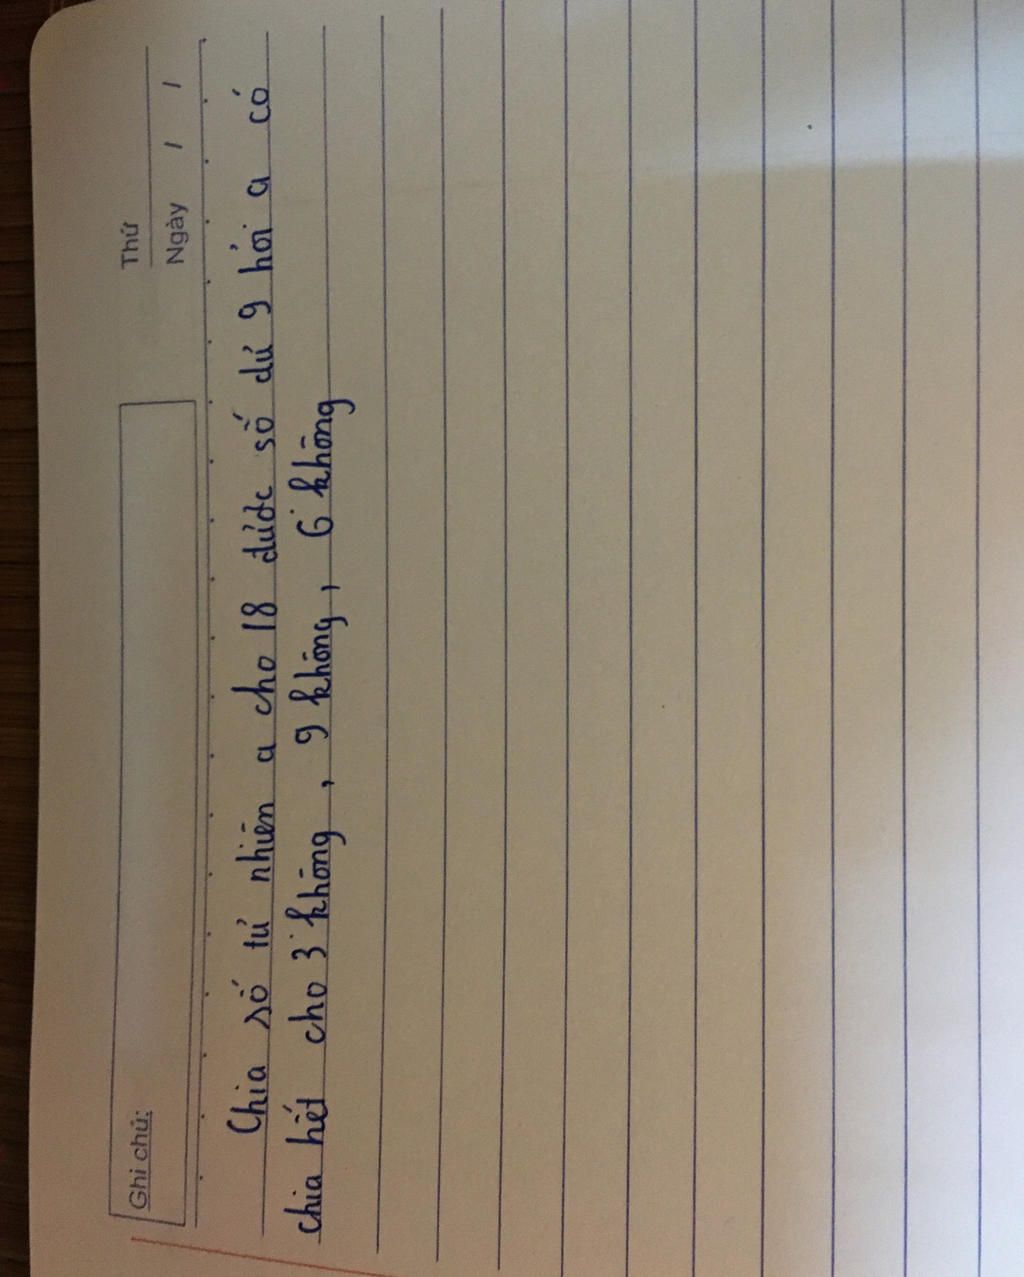 Ghi chú:
Thứ
Ngày / /
Chia số tự nhiên a cho 18 được số dư 9 hỏi a có
chia hết cho 3 không, 9 không, 6 không